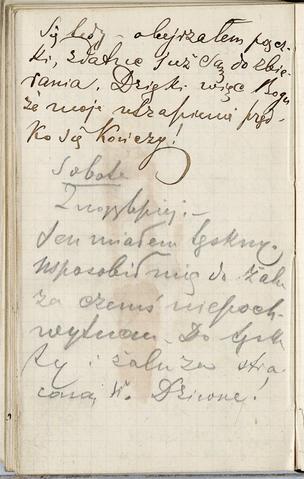 będę – obejrzałem porzecz-
ki, zdatne już są do zbie-
rania. Dzięki więc Bogu
że moje utrapienie pręd-
ko się kończy!
Sobota
Znacz lepiej. –
Sen miałem tęskny.
Usposobił mię do żalu
za czemś niepoch-
wytnem. Do tęskno-
ty i żalu za stra-
coną. Dziwne!